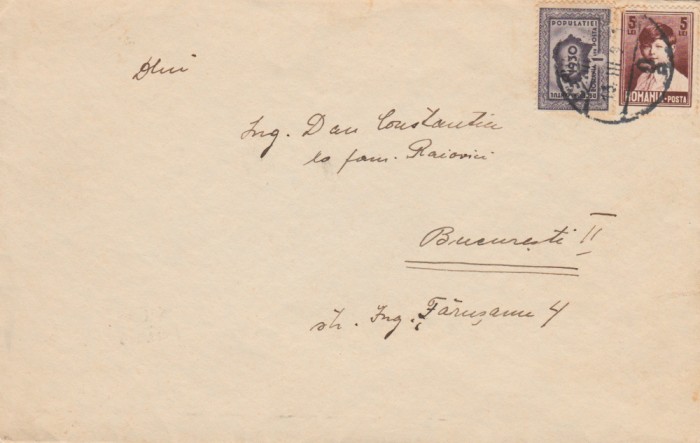 POPULATIEI
1930
5 LEI 5 LEI
ROMANIA-POSTA
Dlui
Ing. Dan Constantin
la fam. Raiovici
București II
str. Ing. Țărușanu 4